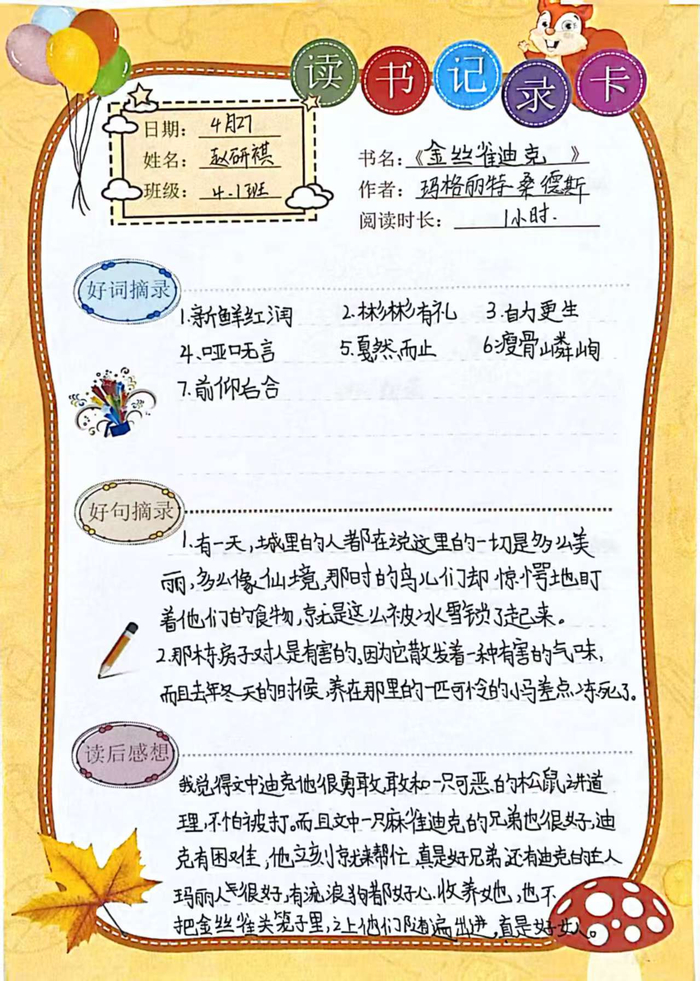 读书记录卡
日期：4月27
姓名：赵研祺
班级：4.1班
书名：《金丝雀迪克》
作者：玛格丽特·桑德斯
阅读时长：1小时.
好词摘录
1.新鲜红润 2.彬彬有礼 3.自力更生
4.哑口无言 5.戛然而止 6.瘦骨嶙峋
7.前仰后合
好句摘录
1.有一天，城里的人都在说这里的一切是多么美
丽，多么像仙境，那时的鸟儿们却惊愕地盯
着他们的食物，就是这么被冰雪锁了起来。
2.那栋房子对人是有害的，因为它散发着一种有害的气味，
而且去年冬天的时候，养在那里的一匹可怜的小马差点冻死了。
读后感想
我觉得文中迪克他很勇敢，敢和一只可恶的松鼠讲道
理，不怕被打。而且文中一只麻雀迪克的兄弟也很好，迪
克有困难，他立刻就来帮忙，真是好兄弟还有迪克的主人
玛丽人也很好，有流浪狗都好心收养她，也不
把金丝雀关笼子里，让他们随便出进，真是好女人。